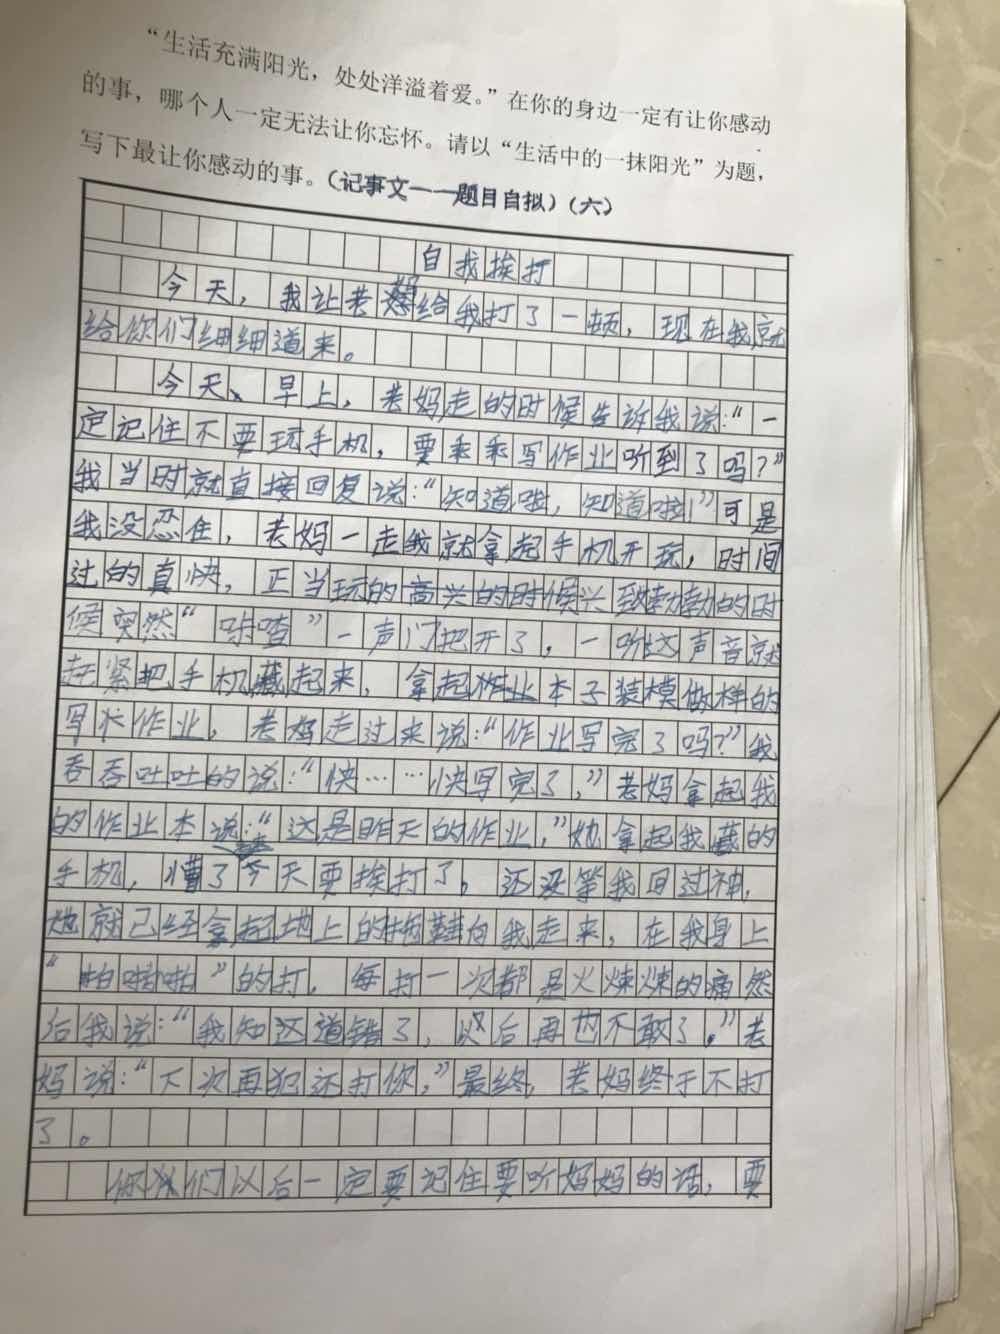 “生活充满阳光，处处洋溢着爱。”在你的身边一定有让你感动
的事，哪个人一定无法让你忘怀。请以“生活中的一抹阳光”为题，
写下最让你感动的事。（记事文——题目自拟）（六）
自我挨打
今天，我让老妈给我打了一顿，现在我就
给你们细细道来。
今天、早上，老妈走的时候告诉我说：“一
定记住不要玩手机，要乖乖写作业听到了吗？”
我当时就直接回复说：“知道啦，知道啦！”可是
我没忍住，老妈一走我就拿起手机开玩，时间
过的真快，正当玩的高兴的时候兴致勃勃的时
候突然“咔喳”一声门把开了，一听这声音就
赶紧把手机藏起来，拿起作业本子装模做样的
写忙作业，老妈走过来说：“作业写完了吗？”我
吞吞吐吐的说：“快……快写完了，”老妈拿起我
的作业本说：“这是昨天的作业，”她拿起我藏的
手机，懵了今天要挨打了。还没等我回过神，
她就已经拿起地上的拖鞋向我走来，在我身上
“啪啪啪”的打，每打一次都是火辣辣的痛然
后我说：“我知这道错了，以后再也不敢了。”老
妈说：“下次再犯还打你，”最终，老妈终于不打
了。
你们以后一定要记住要听妈妈的话，要